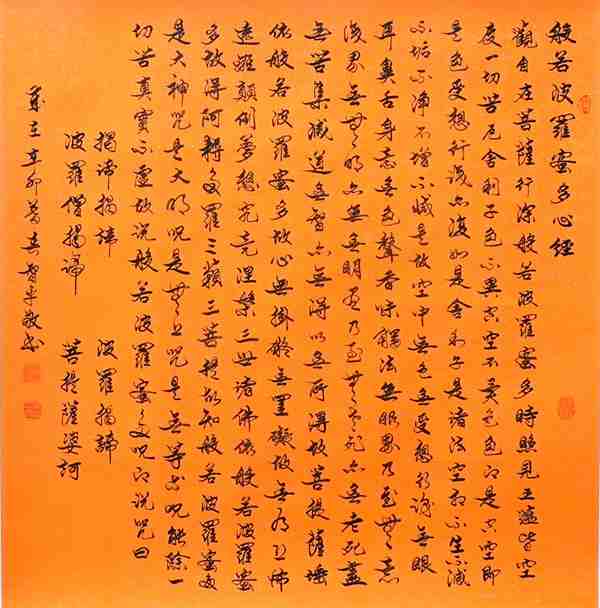 般若波羅蜜多心經
觀自在菩薩行深般若波羅蜜多時照見五蘊皆空
度一切苦厄舍利子色不異空空不異色色即是空空即
是色受想行識亦復如是舍利子是諸法空相不生不滅
不垢不淨不增不減是故空中無色無受想行識無眼
耳鼻舌身意無色聲香味觸法無眼界乃至無意
識界無無明亦無無明盡乃至無老死亦無老死盡
無苦集滅道無智亦無得以無所得故菩提薩埵
依般若波羅蜜多故心無掛礙無罣礙故無有恐怖
遠離顛倒夢想究竟涅槃三世諸佛依般若波羅蜜
多故得阿耨多羅三藐三菩提故知般若波羅蜜多
是大神咒是大明咒是無上咒是無等等咒能除一
切苦真實不虛故說般若波羅蜜多咒即說咒曰
揭諦揭諦 波羅揭諦
波羅僧揭諦 菩提薩婆訶
歲在辛卯暮春智平敬書